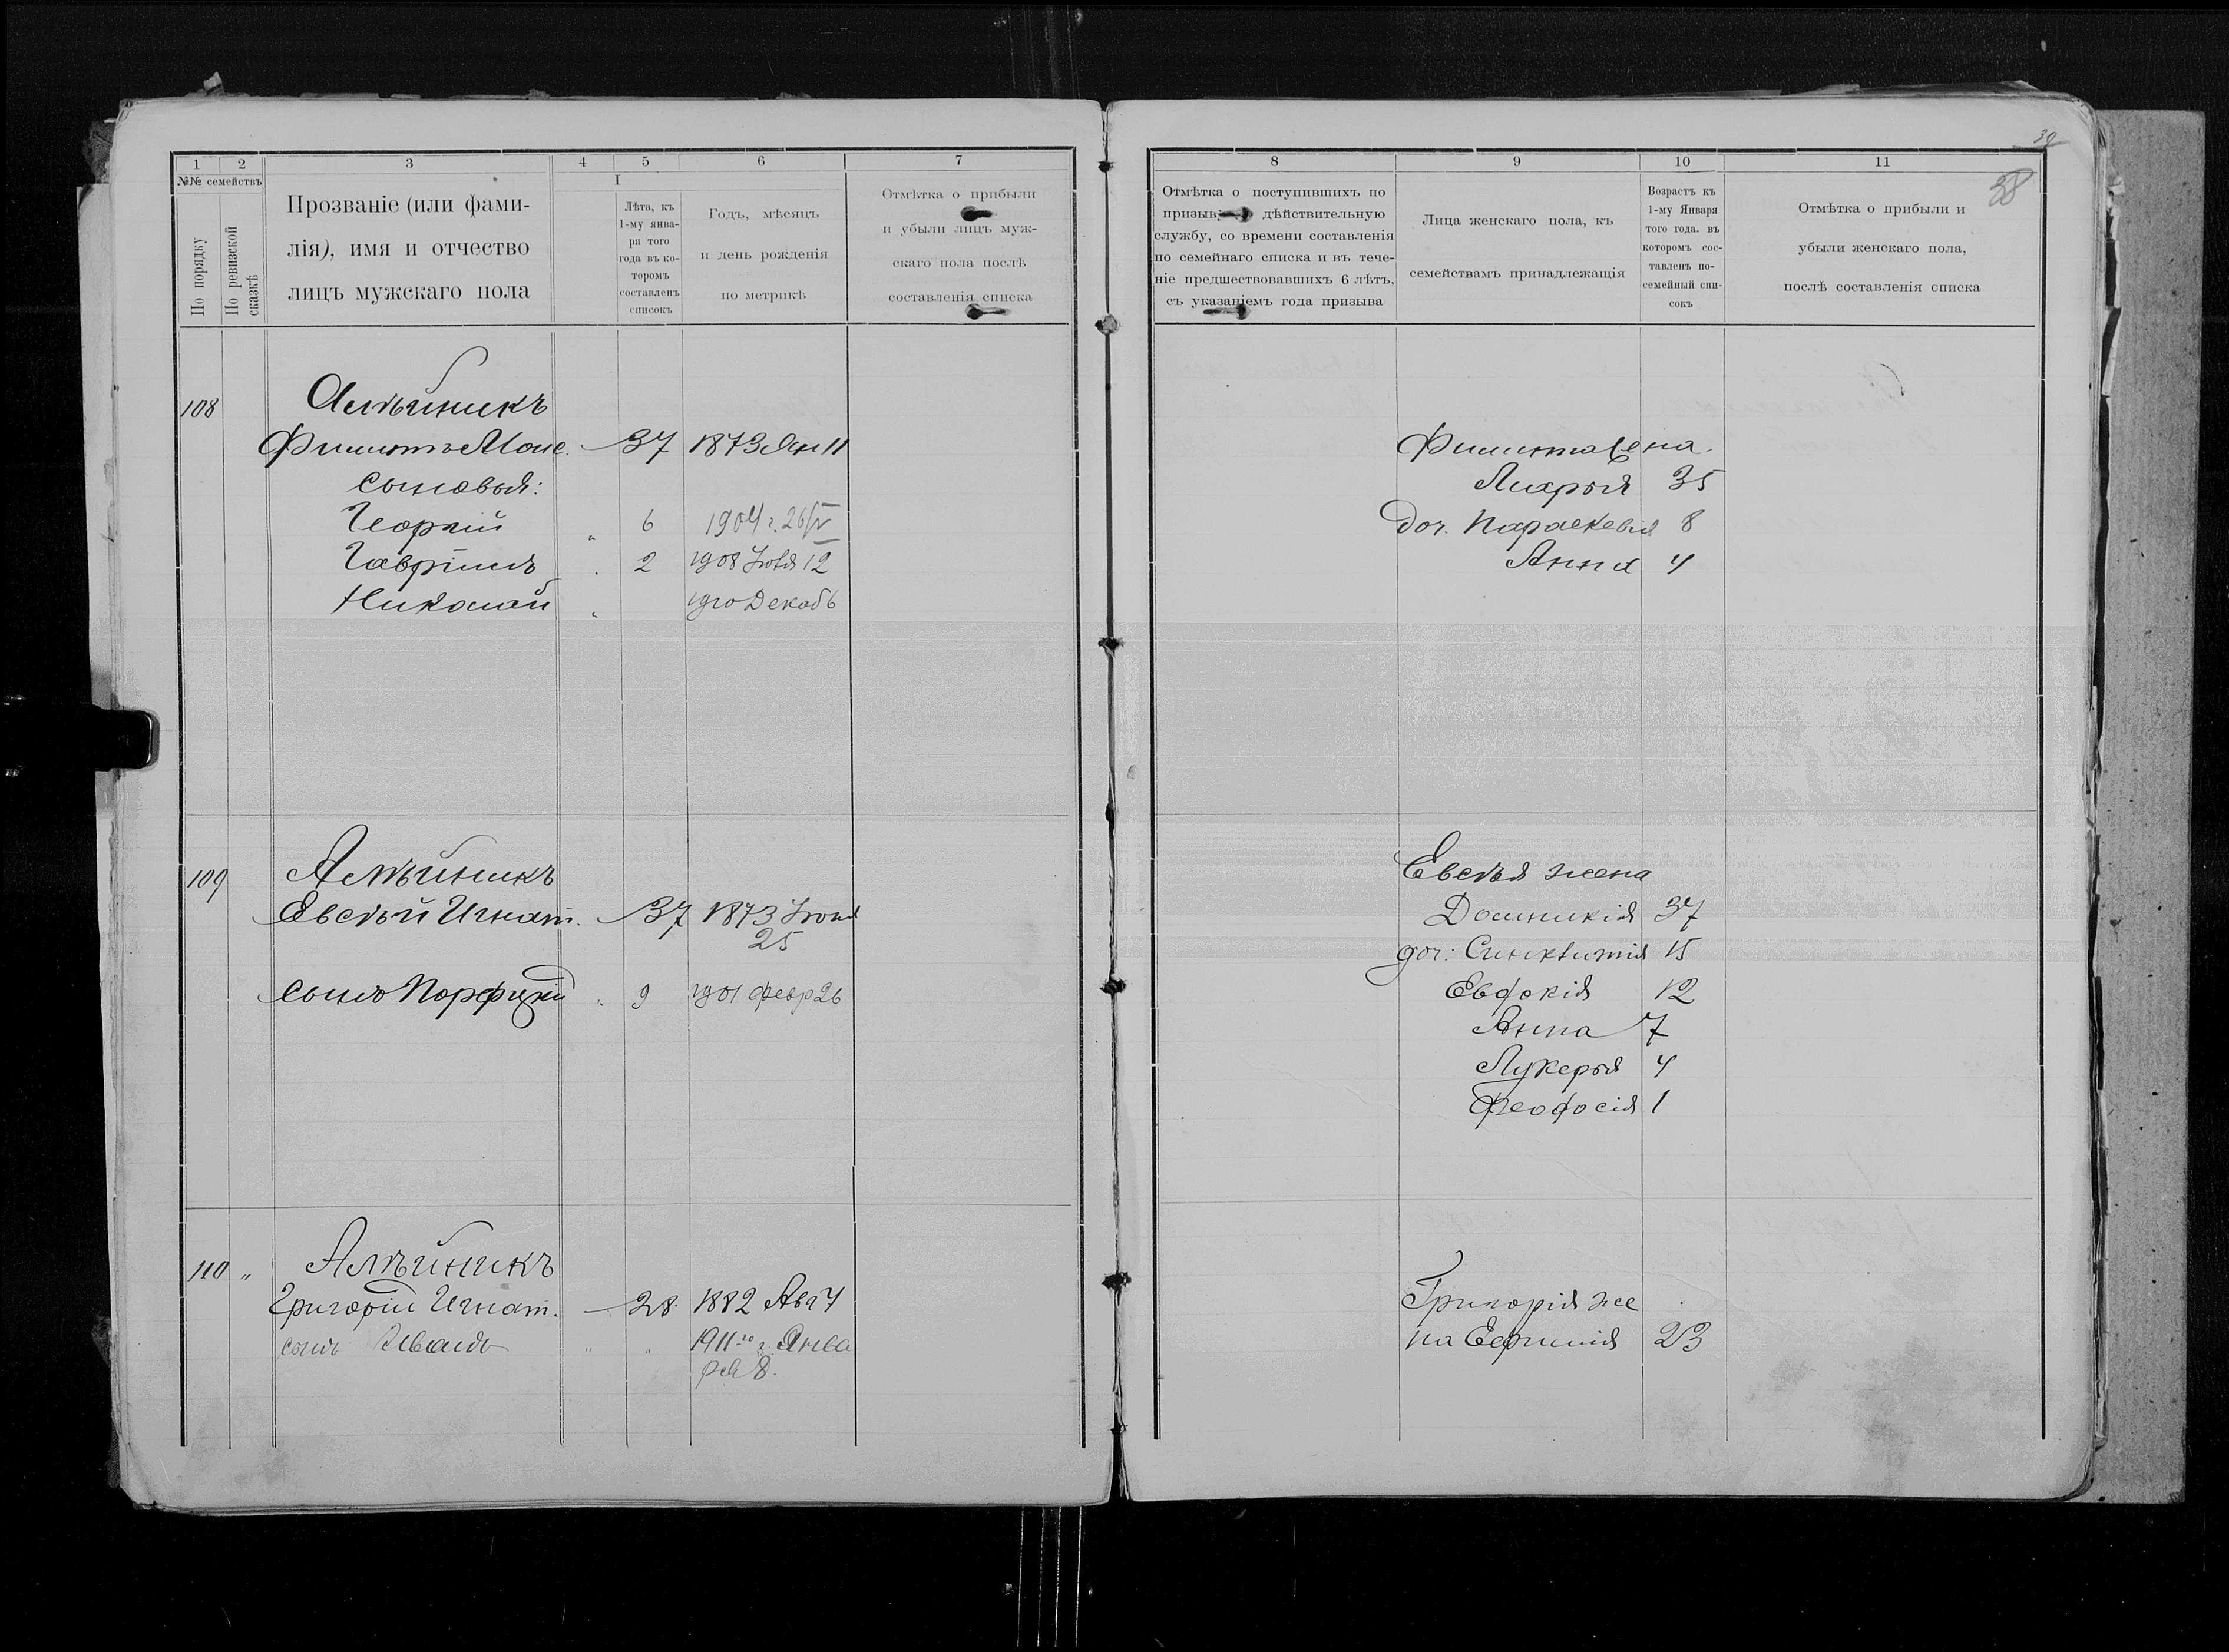 1 2 3 4 5 6 7
№№ семействъ
По порядку
По ревизской сказкѣ
Прозваніе (или фами-
лія), имя и отчество
лицъ мужскаго пола
I
Лѣта, къ
1-му янва-
ря того
года въ ко-
торомъ
составленъ
списокъ
Годъ, мѣсяцъ
и день рожденія
по метрикѣ
Отмѣтка о прибыли
и убыли лицъ муж-
скаго пола послѣ
составленія списка
108 Алѣйникъ
Филиппъ Моис. 37 1873 Ян 11
сыновья:
Георгій " 6 1904 г. 26/IV
Гавріилъ 2 1908 Іюля 12
Николай " 1910 Декаб 6
109 Алѣйникъ
Евсѣй Игнат. 37 1873 Іюня
25
сынъ Порфирій " 9 1901 февр 26
110 " Алѣйникъ
Григорій Игнат. 28 1882 Авг 4
сынъ Иванъ " " 1911 го г. Янва
ря 8.
39
38
8 9 10 11
Отмѣтка о поступившихъ по
призыву дѣйствительную
службу, со времени составленія
по семейнаго списка и въ тече-
ніе предшествовавшихъ 6 лѣтъ,
съ указаніемъ года призыва
Лица женскаго пола, къ
семействамъ принадлежащія
Возрастъ къ
1-му Января
того года. въ
которомъ сос-
тавленъ по-
семейный спи-
сокъ
Отмѣтка о прибыли и
убыли женскаго пола,
послѣ составленія списка
Филиппа жена.
35
доч. Параскевія 8
Анна 4
Евсѣя жена
Домникія 37
доч: Синклитія 15
Евдокія 12
Анна 7
Лукерья 4
Феодосія 1
Григорія же
на Ефимія 23